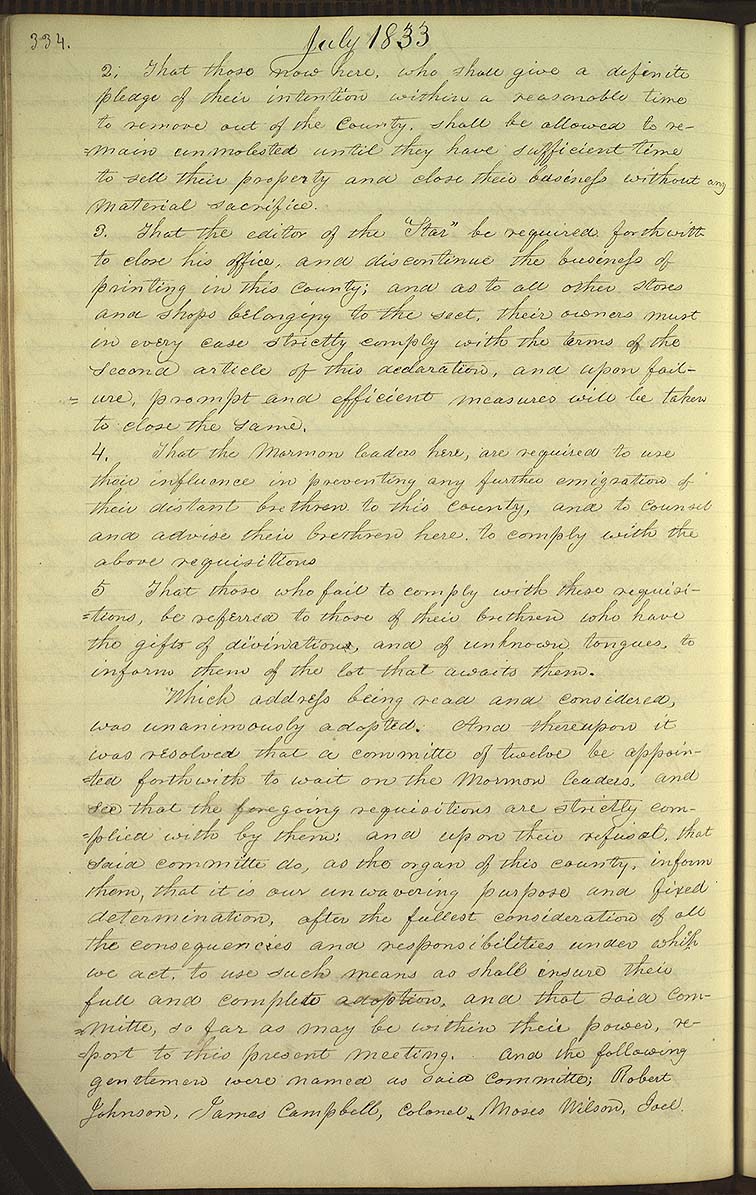 334. July 1833
2; That those now here, who shall give a definite
pledge of their intention within a reasonable time
to remove out of the County, shall be allowed to re-
=main unmolested until they have sufficient time
to sell their property and close their business without any
material sacrifice.
3. That the editor of the "Star" be required forthwith
to close his office, and discontinue the business of
printing in this county; and as to all other stores
and shops belonging to the sect, their owners must
in every case strictly comply with the terms of the
second article of this declaration, and upon fail-
=ure, prompt and efficient measures will be taken
to close the same.
4. That the Mormon leaders here, are required to use
their influence in preventing any further emigration of
their distant brethren to this county, and to counsel
and advise their brethren here, to comply with the
above requisitions
5 That those who fail to comply with these requisi-
=tions, be referred to those of their brethren who have
the gifts of divinations, and of unknown tongues, to
inform them of the lot that awaits them.
Which address being read and considered,
was unanimously adopted. And thereupon it
was resolved that a committe of twelve be appoin-
=ted forthwith to wait on the Mormon leaders, and
see that the foregoing requisitions are strictly com-
=plied with by them; and upon their refusal, that
said committe do, as the organ of this county, inform
them, that it is our unwavering purpose and fixed
determination, after the fullest consideration of all
the consequencies and responsibilities under which
we act, to use such means as shall insure their
full and complete adoption, and that said com-
=mitte, so far as may be within their power, re-
=port to this present meeting. And the following
gentlemen were named as said committe; Robert
Johnson, James Campbell, Colonel Moses Wilson, Joel